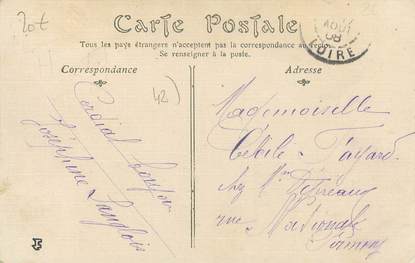 20€
Carte Postale
Tous les pays étrangers n'acceptent pas la correspondance au recto
Se renseigner à la poste.
LOIRE
Correspondance
Adresse
42)
Cordial bonjour
Joséphine Langlois
Mademoiselle
chez Mme
rue Nationale
Firminy